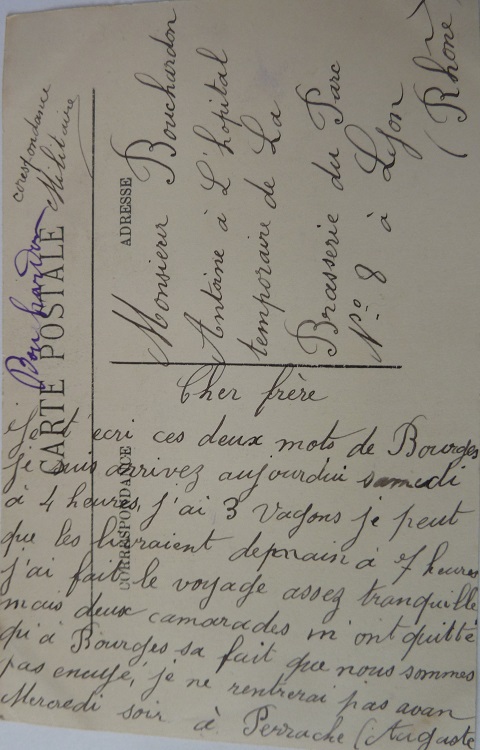 CARTE POSTALE
corespondance
Militaire
Bouchardon
ADRESSE
Monsieur Bouchardon
Antoine à L'hopital
temporaire de La
Brasserie du Parc
No 8 à Lyon
(Rhône)
CORRESPONDANCE
Cher frère
Je t'écri ces deux mots de Bourges
je suis arrivez aujourdui samedi
à 4 heures, j'ai 3 Vagons je peut
que les livraient demain à 7 heures
j'ai fait le voyage assez tranquille
mais deux camarades m'ont quitté
qu'à Bourges sa fait que nous sommes
pas enuyé, je ne rentrerai pas avan
Mercredi soir à Perrache (Auguste